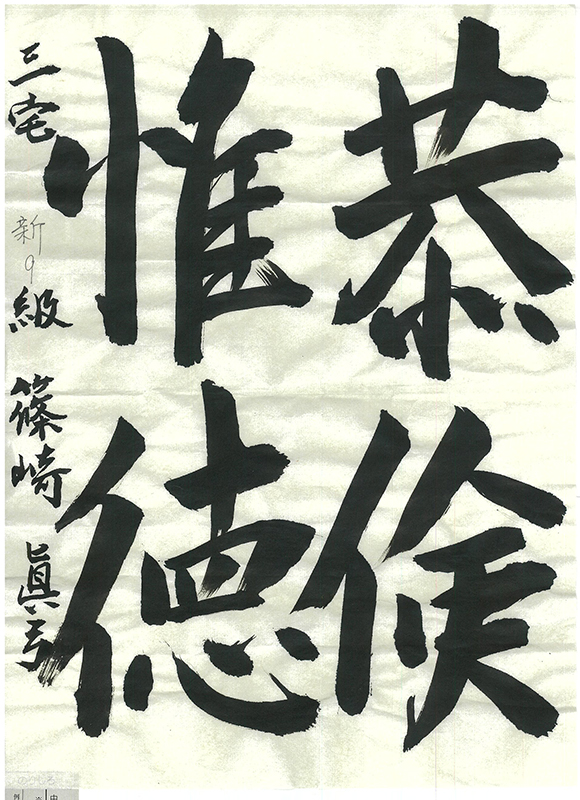 恭倹
惟徳
三宅 新9級 篠崎 眞弓